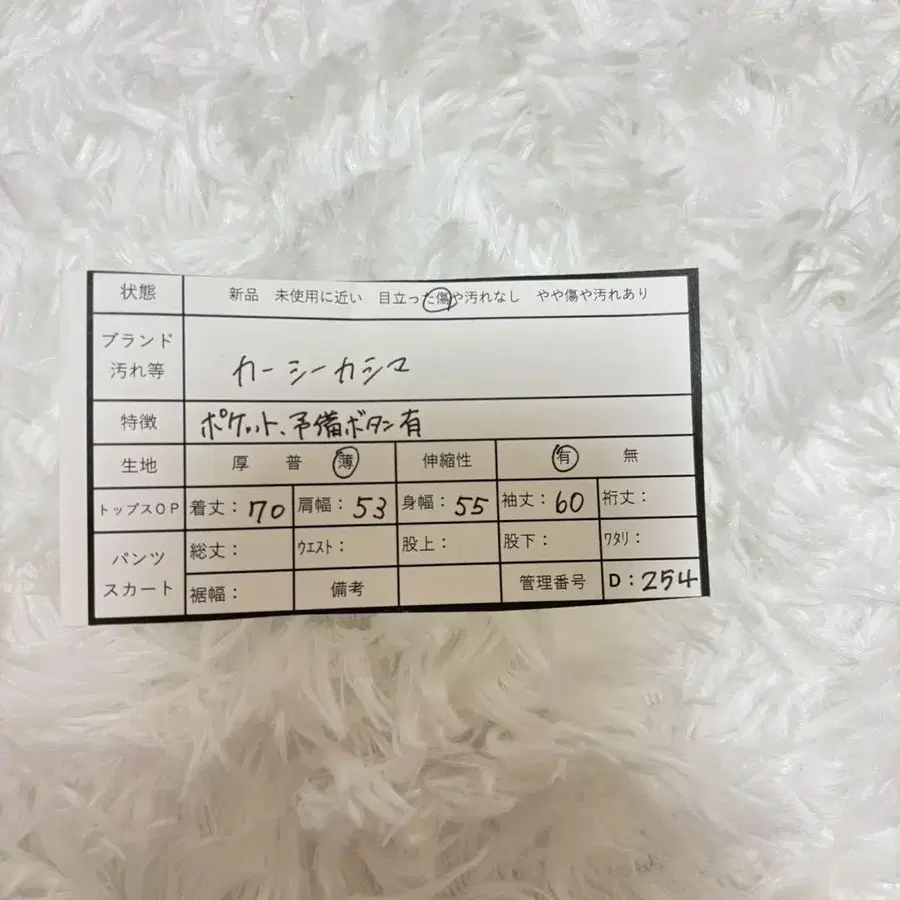 状態 新品 未使用に近い 目立った傷や汚れなし やや傷や汚れあり
ブランド
汚れ等 カーシーカシマ
特徴 ポケット、予備ボタン有
生地 厚 普 薄 伸縮性 有 無
トップスOP 着丈：70 肩幅：53 身幅：55 袖丈：60 裄丈：
パンツ
スカート 総丈： ウエスト： 股上： 股下： ワタリ：
裾幅： 備考 管理番号 D：254